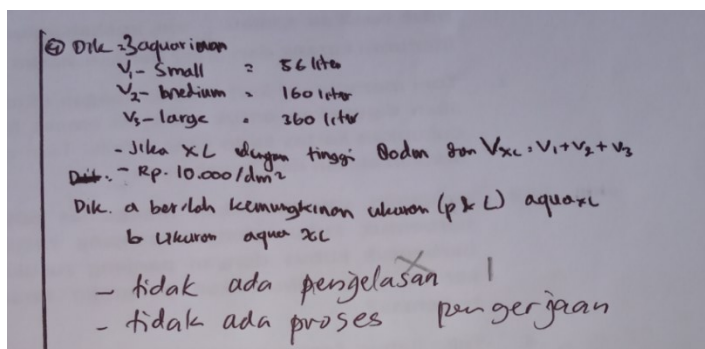 ② Dik = 3 aquarium
V₁ - Small = 56 liter
V₂ - Medium = 160 liter
V₃ - large = 360 liter
- Jika XL dengan tinggi dan V_XL = V₁ + V₂ + V₃
- Rp. 10.000/dm²
Dik. a berilah kemungkinan ukuran (p & L) aqua XL
b Ukuran aqua XL
- tidak ada penjelasan 1
- tidak ada proses pengerjaan